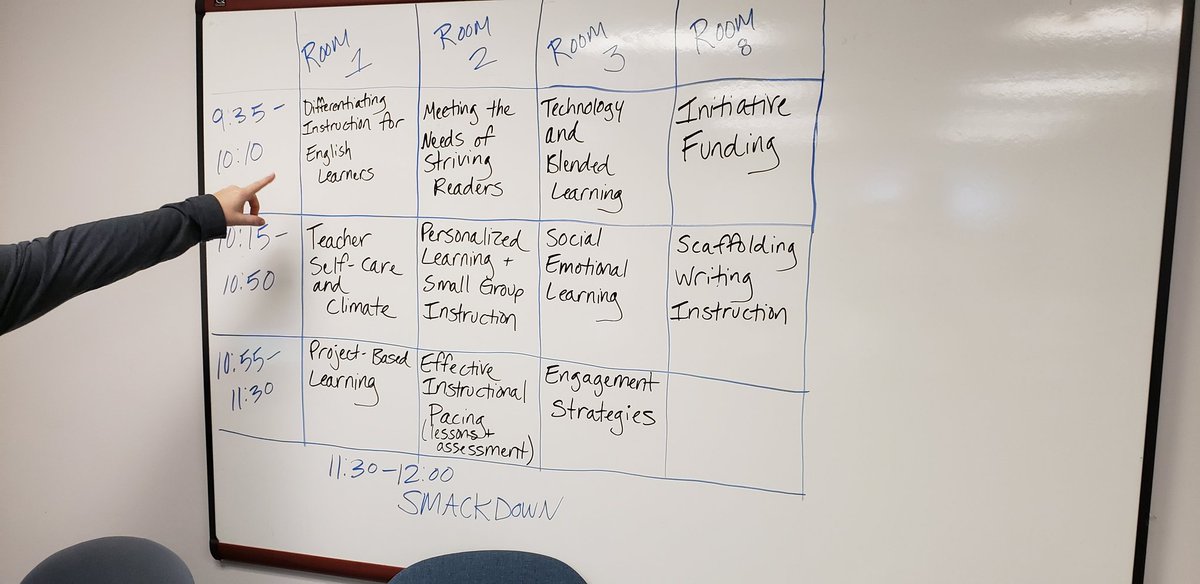 Room 1
Room 2
Room 3
Room 8
9:35-
10:10
Differentiating
Instruction for
English
Learners
Meeting the
Needs of
Striving
Readers
Technology
and
Blended
Learning
Initiative
Funding
10:15-
10:50
Teacher
Self-Care
and
Climate
Personalized
Learning +
Small Group
Instruction
Social
Emotional
Learning
Scaffolding
Writing
Instruction
10:55-
11:30
Project-Based
Learning
Effective
Instructional
Pacing
(lessons +
assessment)
Engagement
Strategies
11:30-12:00
SMACKDOWN